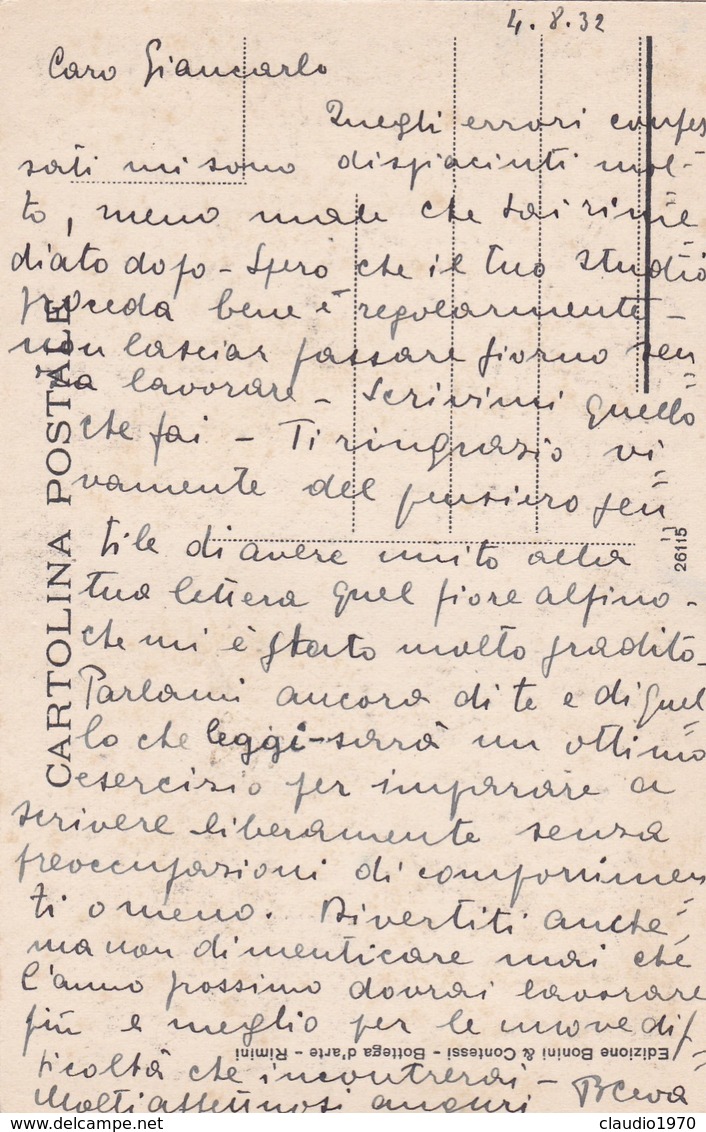 4.8.32
Caro Giancarlo
Quegli errori confes
sati mi sono dispiaciuti mol=
to, meno male che hai rime
diato dopo - Spero che il tuo studio
proceda bene e regolarmente -
non lasciar passare giorno sen
za lavorare - Scrivimi quello
che fai - Ti ringrazio vi=
vamente del pensiero gen
tile di avere unito alla
tua lettera quel fiore alpino -
che mi è stato molto gradito -
Parlami ancora di te e di quel=
lo che leggi - sarà un ottimo
esercizio per imparare a
scrivere liberamente senza
preoccupazioni di componimen
ti o meno. Divertiti anche,
ma non dimenticare mai che
l'anno prossimo dovrai lavorare
più e meglio per le nuove dif=
ficoltà che incontrerai -
Molti affettuosi auguri
CARTOLINA POSTALE
26115
Edizione Bonini & Contessi - Bottega d'arte - Rimini
claudio1970